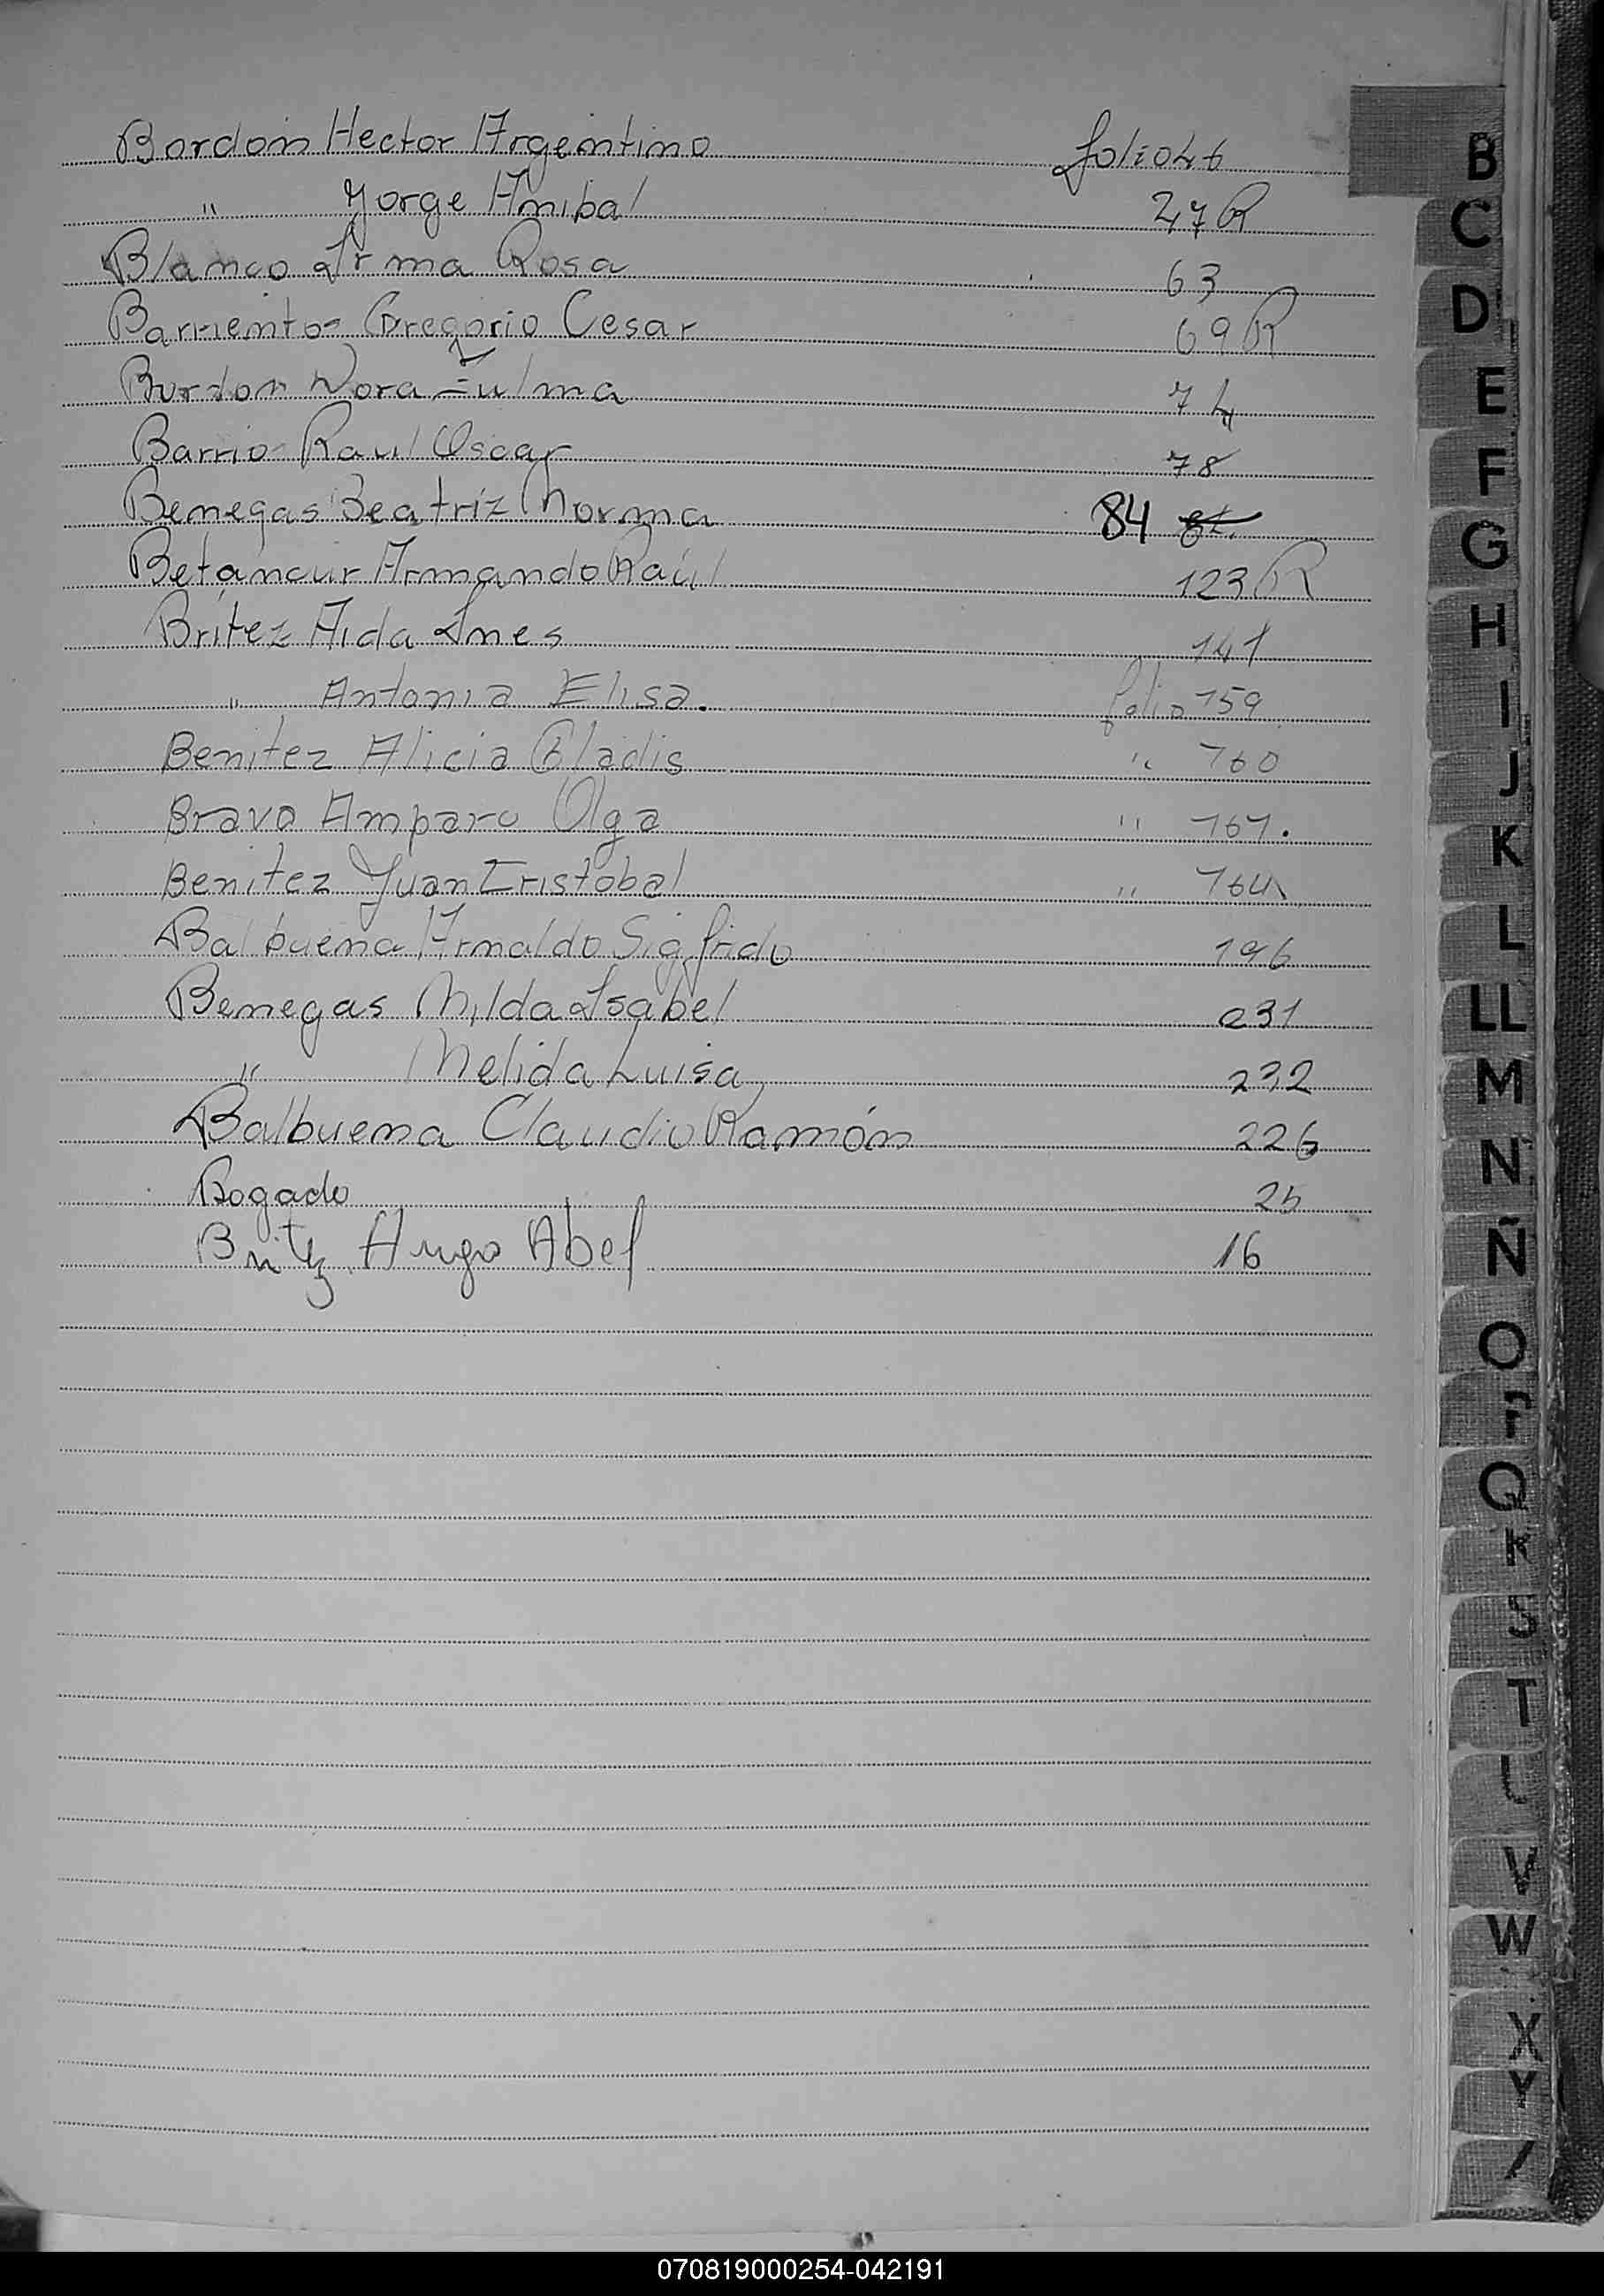 Bordón Hector Argentino folio 46
" Jorge Anibal 27 R
Blanco Irma Rosa 63
Barrientos Gregorio Cesar 69 R
Bordon Nora Zulma 74
Barrios Raul Oscar 78
Benegas Beatriz Norma 84
Betancur Armando Raúl 123 R
Britez Aida Ines 141
" Antonia Elisa. folio 159
Benitez Alicia Gladis " 160
Bravo Amparo Olga " 161.
Benitez Juan Cristobal " 164
Balbuena Arnaldo Sigfrido 196
Benegas Nilda Isabel 231
" Nelida Luisa 232
Balbuena Claudio Ramón 226
Bogado 25
Britez Hugo Abel 16
B
C
D
E
F
G
H
I
J
K
L
LL
M
N
Ñ
O
P
Q
R
S
T
V
W
X
Y
070819000254-042191